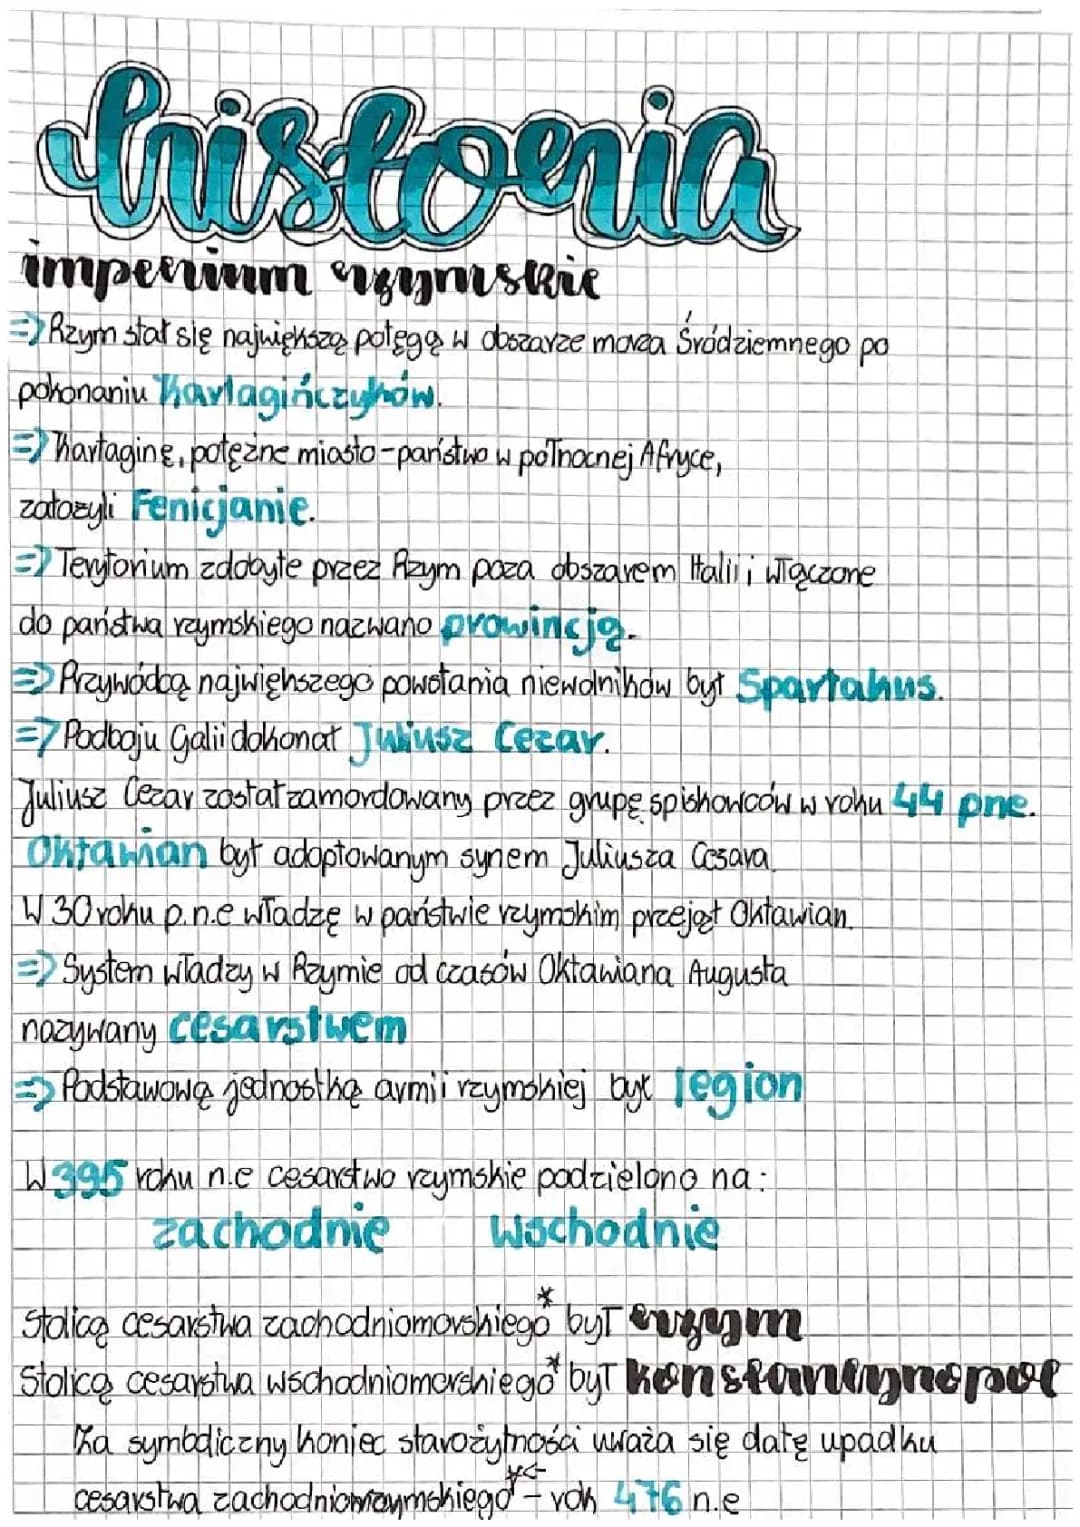 historia
imperium rzymskie
=> Rzym stał się największą potęgą w obszarze morza Śródziemnego po
pokonaniu Kartagińczyków.
=> Kartaginę, potężne miasto-państwo w północnej Afryce,
założyli Fenicjanie.
=> Terytorium zdobyte przez Rzym poza obszarem Italii i włączone
do państwa rzymskiego nazwano prowincją.
=> Przywódcą największego powstania niewolników był Spartakus.
=> Podboju Galii dokonał Juliusz Cezar.
Juliusz Cezar został zamordowany przez grupę spiskowców w roku 44 pne.
Oktawian był adoptowanym synem Juliusza Cesara.
W 30 roku p.n.e władzę w państwie rzymskim przejął Oktawian.
=> System władzy w Rzymie od czasów Oktawiana Augusta
nazywany cesarstwem
=> Podstawową jednostką armii rzymskiej był legion
W 395 roku n.e cesarstwo rzymskie podzielono na:
zachodnie wschodnie
Stolicą cesarstwa zachodniomorskiego* był rzym
Stolicą cesarstwa wschodniomorskiego* był konstantynopol
Za symboliczny koniec starożytności uważa się datę upadku
cesarstwa zachodniorzymskiego* - rok 476 n.e